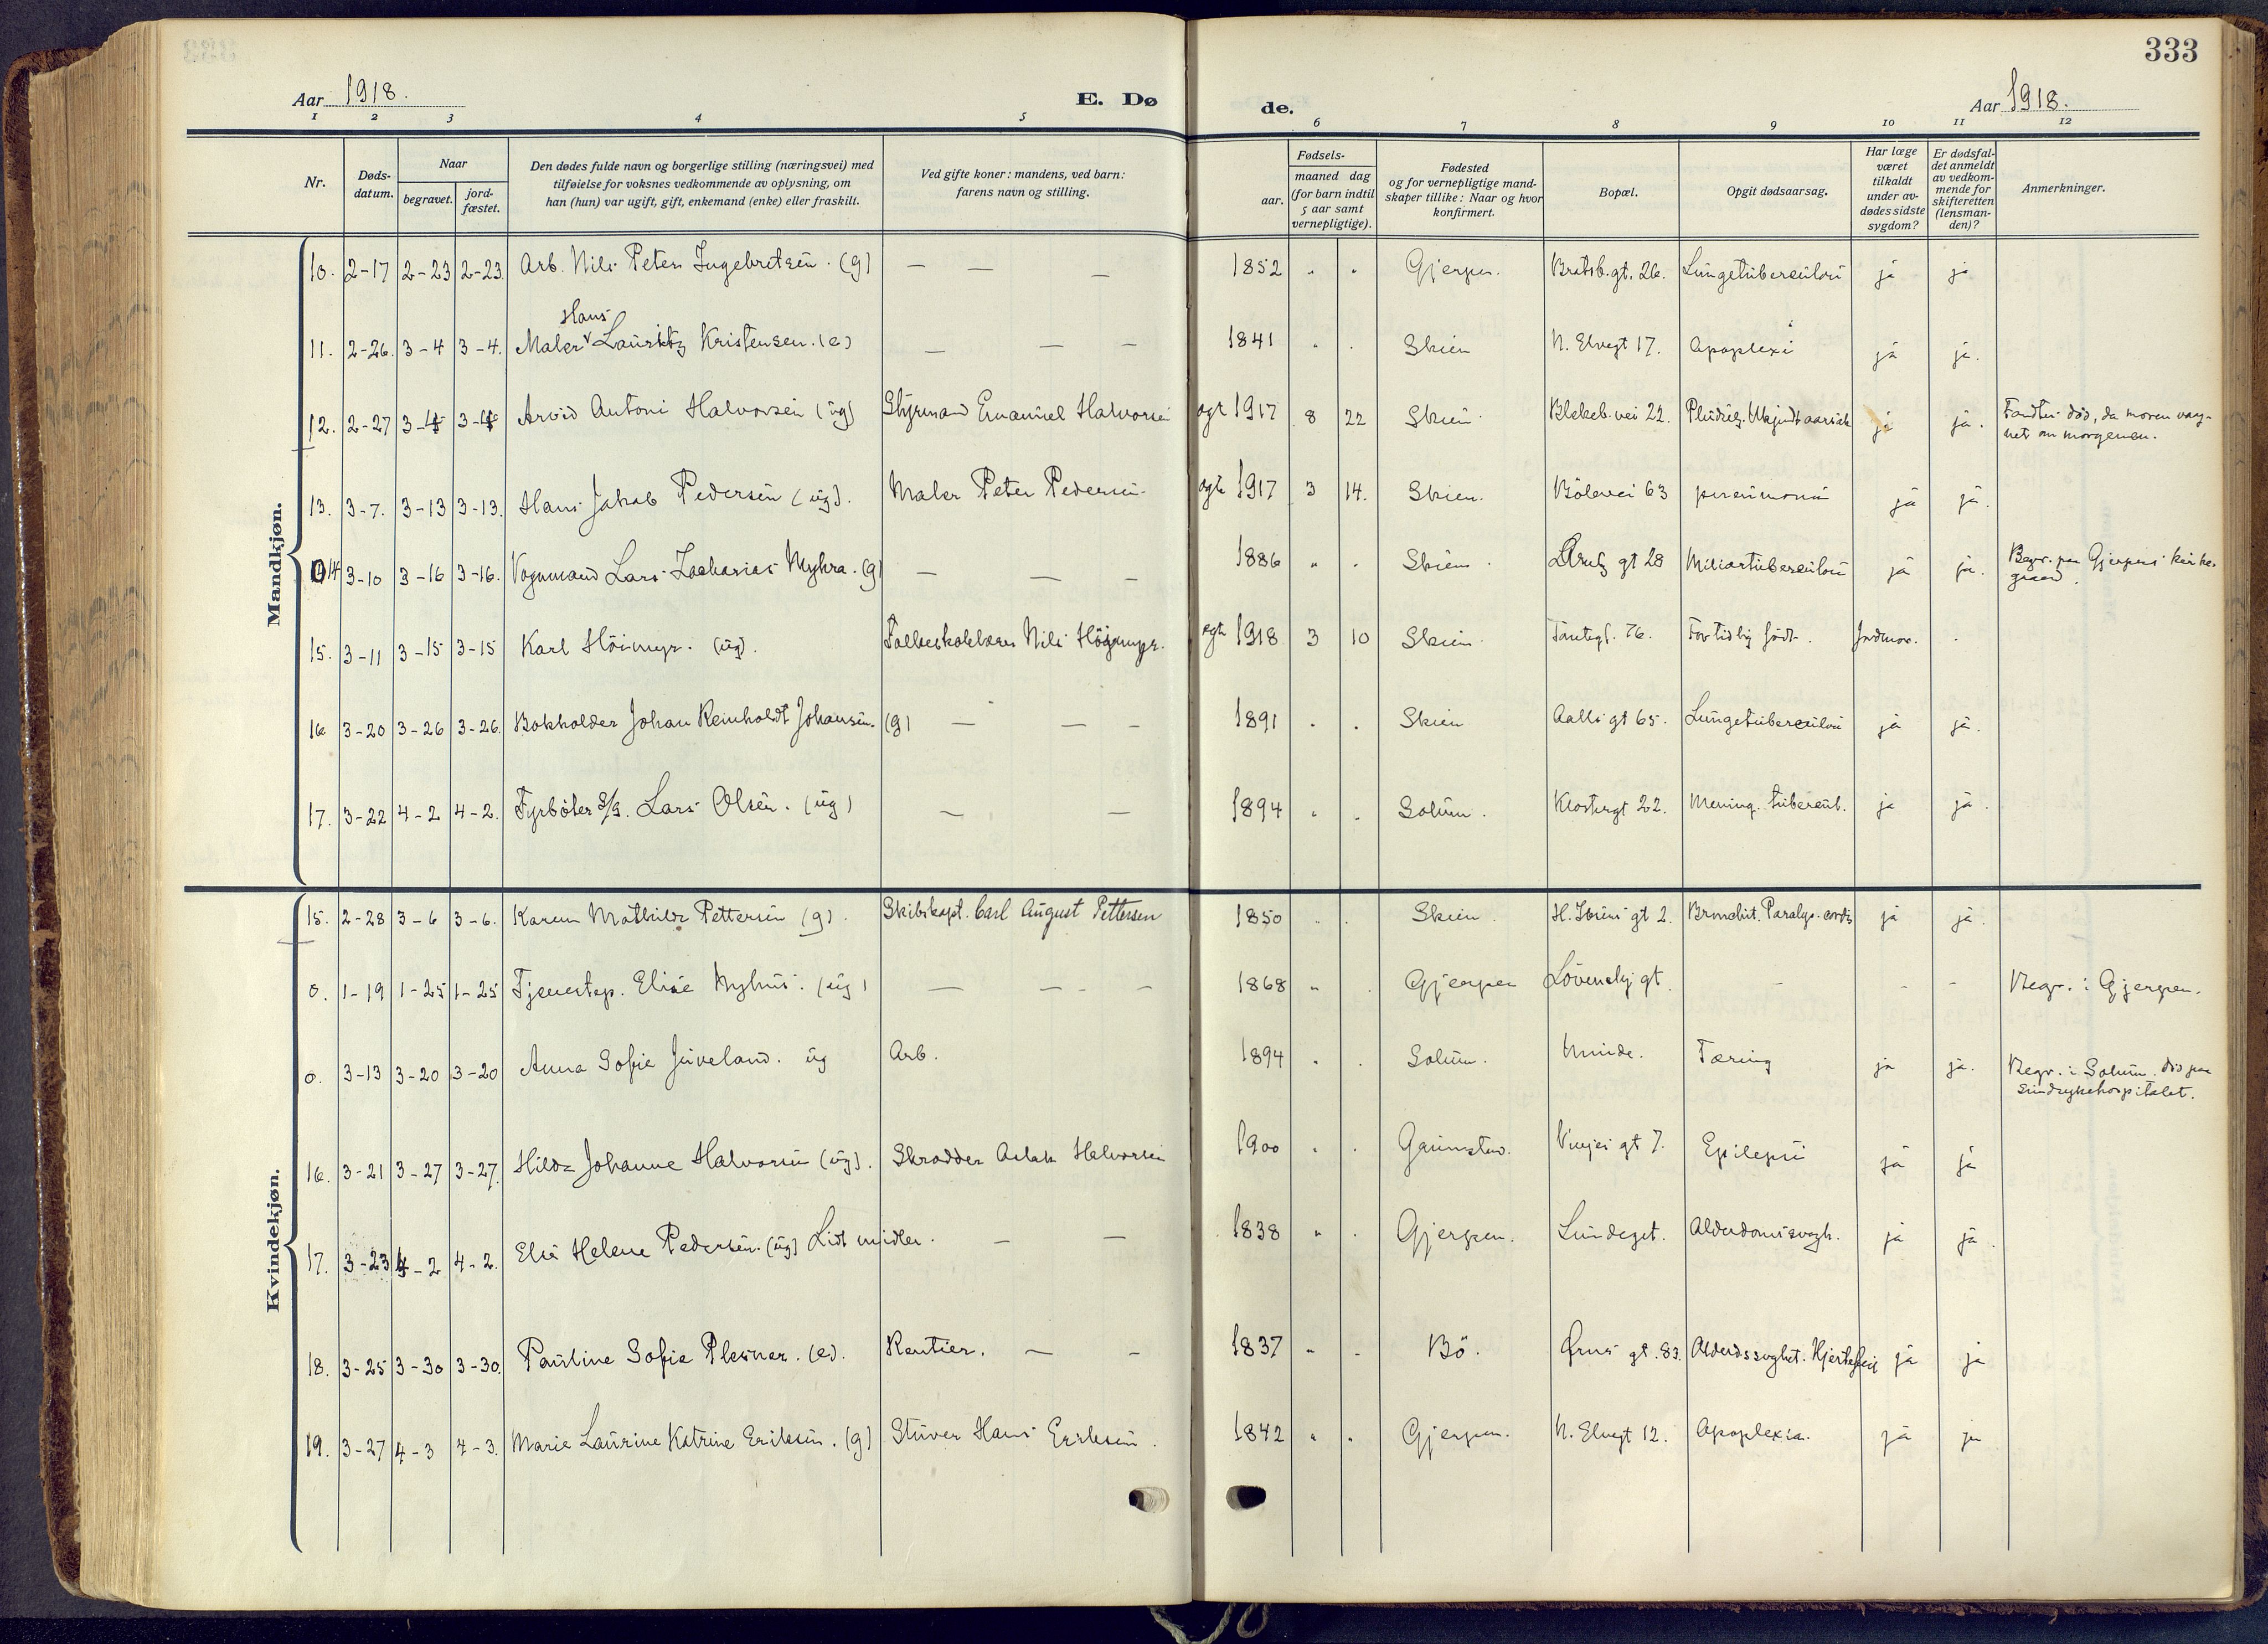 333
Aar 1918.
E. Dø
de.
Aar 1918.
1 2 3 4 5 6 7 8 9 10 11 12
Nr.
Døds-
datum.
Naar
begravet.
jord-
fæstet.
Den dødes fulde navn og borgerlige stilling (næringsvei) med
tilføielse for voksnes vedkommende av oplysning, om
han (hun) var ugift, gift, enkemand (enke) eller fraskilt.
Ved gifte koner: mandens, ved barn:
farens navn og stilling.
Fødsels-
aar.
maaned dag
(for barn indtil
5 aar samt
vernepligtige).
Fødested
og for vernepligtige mand-
skaper tillike: Naar og hvor
konfirmert.
Bopæl.
Opgit dødsaarsag.
Har læge
været
tilkaldt
under av-
dødes sidste
sygdom?
Er dødsfal-
det anmeldt
av vedkom-
mende for
skifteretten
(lensman-
den)?
Anmerkninger.
Mandkjøn.
10. 2-17 2-23 2-23. Arb. Nils Peter Ingebretsen. (g) — — — 1852 " " Gjerpen. Bratsb.gt. 26. Lungetuberculosi ja ja
Hans
11. 2-26. 3-4 3-4. Maler Lauritz Kristensen. (e) — — — 1841 " . Skien N. Elvegt 17. Apoplexi ja ja.
12. 2-27 3-4 3-4 Arvid Antoni Halvorsen (ug) Styrmand Emanuel Halvorsen ægt 1917 8 22 Skien Blekeb. vei 22. ja ja. Fandtes død, da moren vaag-
net om morgenen.
13. 3-7. 3-13 3-13. Hans Jakob Pedersen (ug). Maler Peter Pedersen. ægte 1917 3 14. Skien. Bölevei 63 pneumoni ja ja.
14 3-10 3-16 3-16. Vognmand Lars Zacharias Myhra. (g) — — — 1886 " . Skien gt 28 Miliartuberculosi ja ja. Begr. paa Gjerpens kirke-
gaard.
15. 3-11 3-15 3-15 Karl Höimyr. (ug). Folkeskolelærer Nils Höimyr. ægte 1918 3 10 Skien. 76. For tidlig födt. Jordmor. .
16 3-20 3-26 3-26. Bokholder Johan Reinholdt Johansen. (g) — — — 1891 . . Skien Aalls gt 65. Lungetuberculosi ja ja.
17. 3-22 4-2 4-2. Fyrböter S/S. Lars Olsen. (ug) — — 1894 " . Solum. Klostergt 22. Mening. tubercul. ja ja.
Kvindekjøn.
15. 2-28 3-6 3-6. Karen Mathilde Pettersen (g). Skibskapt. Carl August Pettersen 1850 . . Skien. H. Ibsens gt 2. Bronchit. Paralys. cordis ja ja.
0. 1-19 1-25 1-25 Tjenestep. Elise Myhus. (ug) — — — 1868 " . Gjerpen Lövenskj gt. - - - Begr. i Gjerpen.
0. 3-13 3-20 3-20 Anna Sofie Juveland. ug Arb. 1894 . . Solum. Minde. Tæring ja ja. Begr. i Solum. död paa
sindsykehospitalet.
16. 3-21 3-27 3-27. Hilda Johanne Halvorsen (ug). Skrædder Aslak Halvorsen 1900 . . Vinjes gt 7. Epilepsi ja ja
17. 3-23 4-2 4-2. Else Helene Pedersen. (ug) Lidt midler. — — 1838 " . Gjerpen. Lundegt. Alderdomssvagh. ja ja.
18. 3-25 3-30 3-30. Pauline Sofie Plesner. (e). Rentier. — — 1837 " - Bö. gt. 83. Alderdssvaghet. Hjertefeil ja ja
19. 3-27 4-3 4-3. Marie Laurine Katrine Eriksen. (g) Stuver Hans Eriksen. 1842 " . Gjerpen. N. Elvegt 12. Apoplexia. ja ja